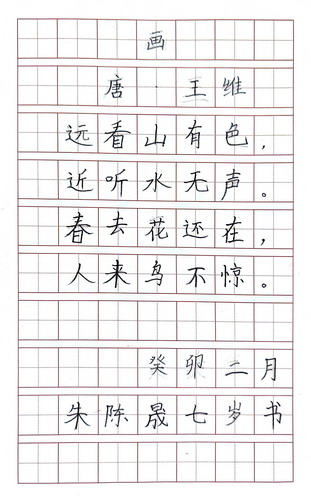 画
唐·王维
远看山有色,
近听水无声。
春去花还在,
人来鸟不惊。
癸卯二月
朱陈晟七岁书